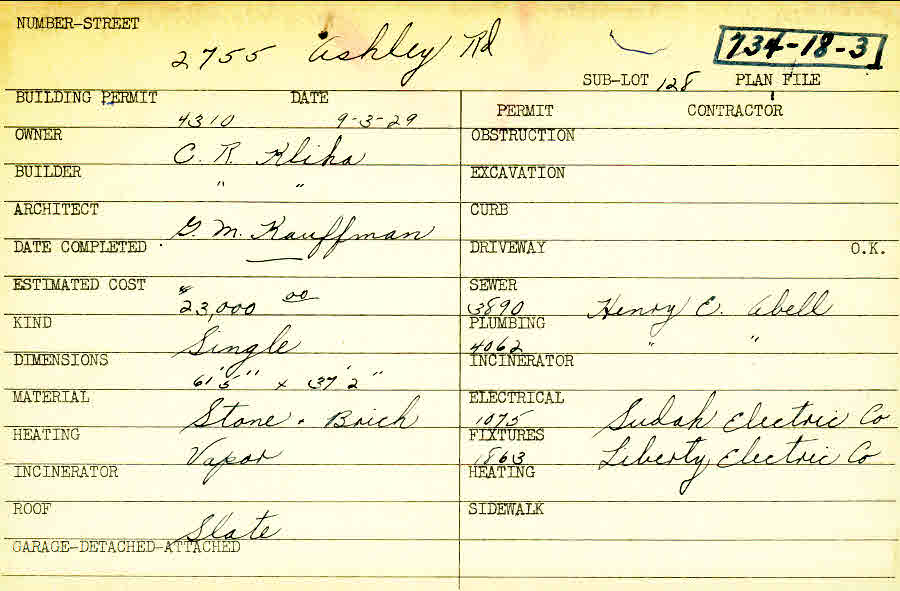 NUMBER-STREET
2755 Ashley Rd
734-18-3
SUB-LOT 128 PLAN FILE
BUILDING PERMIT DATE
4310 9-3-29
OWNER
C. R. Kliha
BUILDER
" "
ARCHITECT
G. M. Kauffman
DATE COMPLETED
ESTIMATED COST
$23,000 00
KIND
Single
DIMENSIONS
61'5" x 37'2"
MATERIAL
Stone . Brick
HEATING
Vapor
INCINERATOR
ROOF
Slate
GARAGE-DETACHED-ATTACHED
PERMIT CONTRACTOR
OBSTRUCTION
EXCAVATION
CURB
DRIVEWAY O.K.
SEWER
3890 Henry E. Abell
PLUMBING
4062 " "
INCINERATOR
ELECTRICAL
1075 Sudah Electric Co
FIXTURES
1863 Liberty Electric Co
HEATING
SIDEWALK